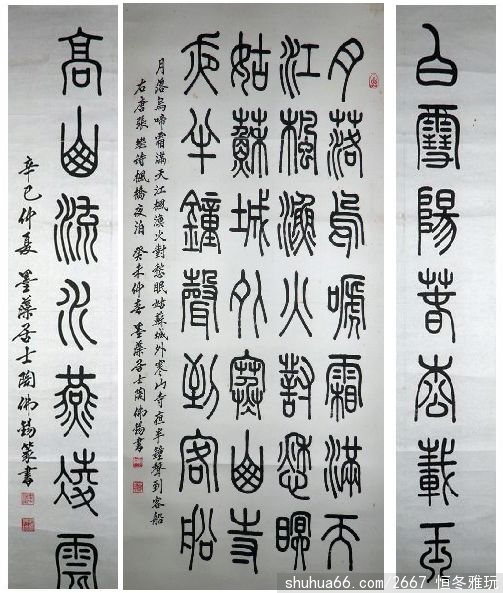 白雪陽春杏載玉
月落烏嗁霜滿天
江楓漁火對愁眠
姑蘇城外寒山寺
夜半鐘聲到客船
月落烏啼霜滿天江楓漁火對愁眠姑蘇城外寒山寺夜半鐘聲到客船
右唐張繼詩楓橋夜泊 癸未仲春 墨藻居士陶佛錫書
高山流水燕凌雲
辛巳仲夏 墨藻居士陶佛錫篆書
shuhua66.com/2667 恒冬雅玩